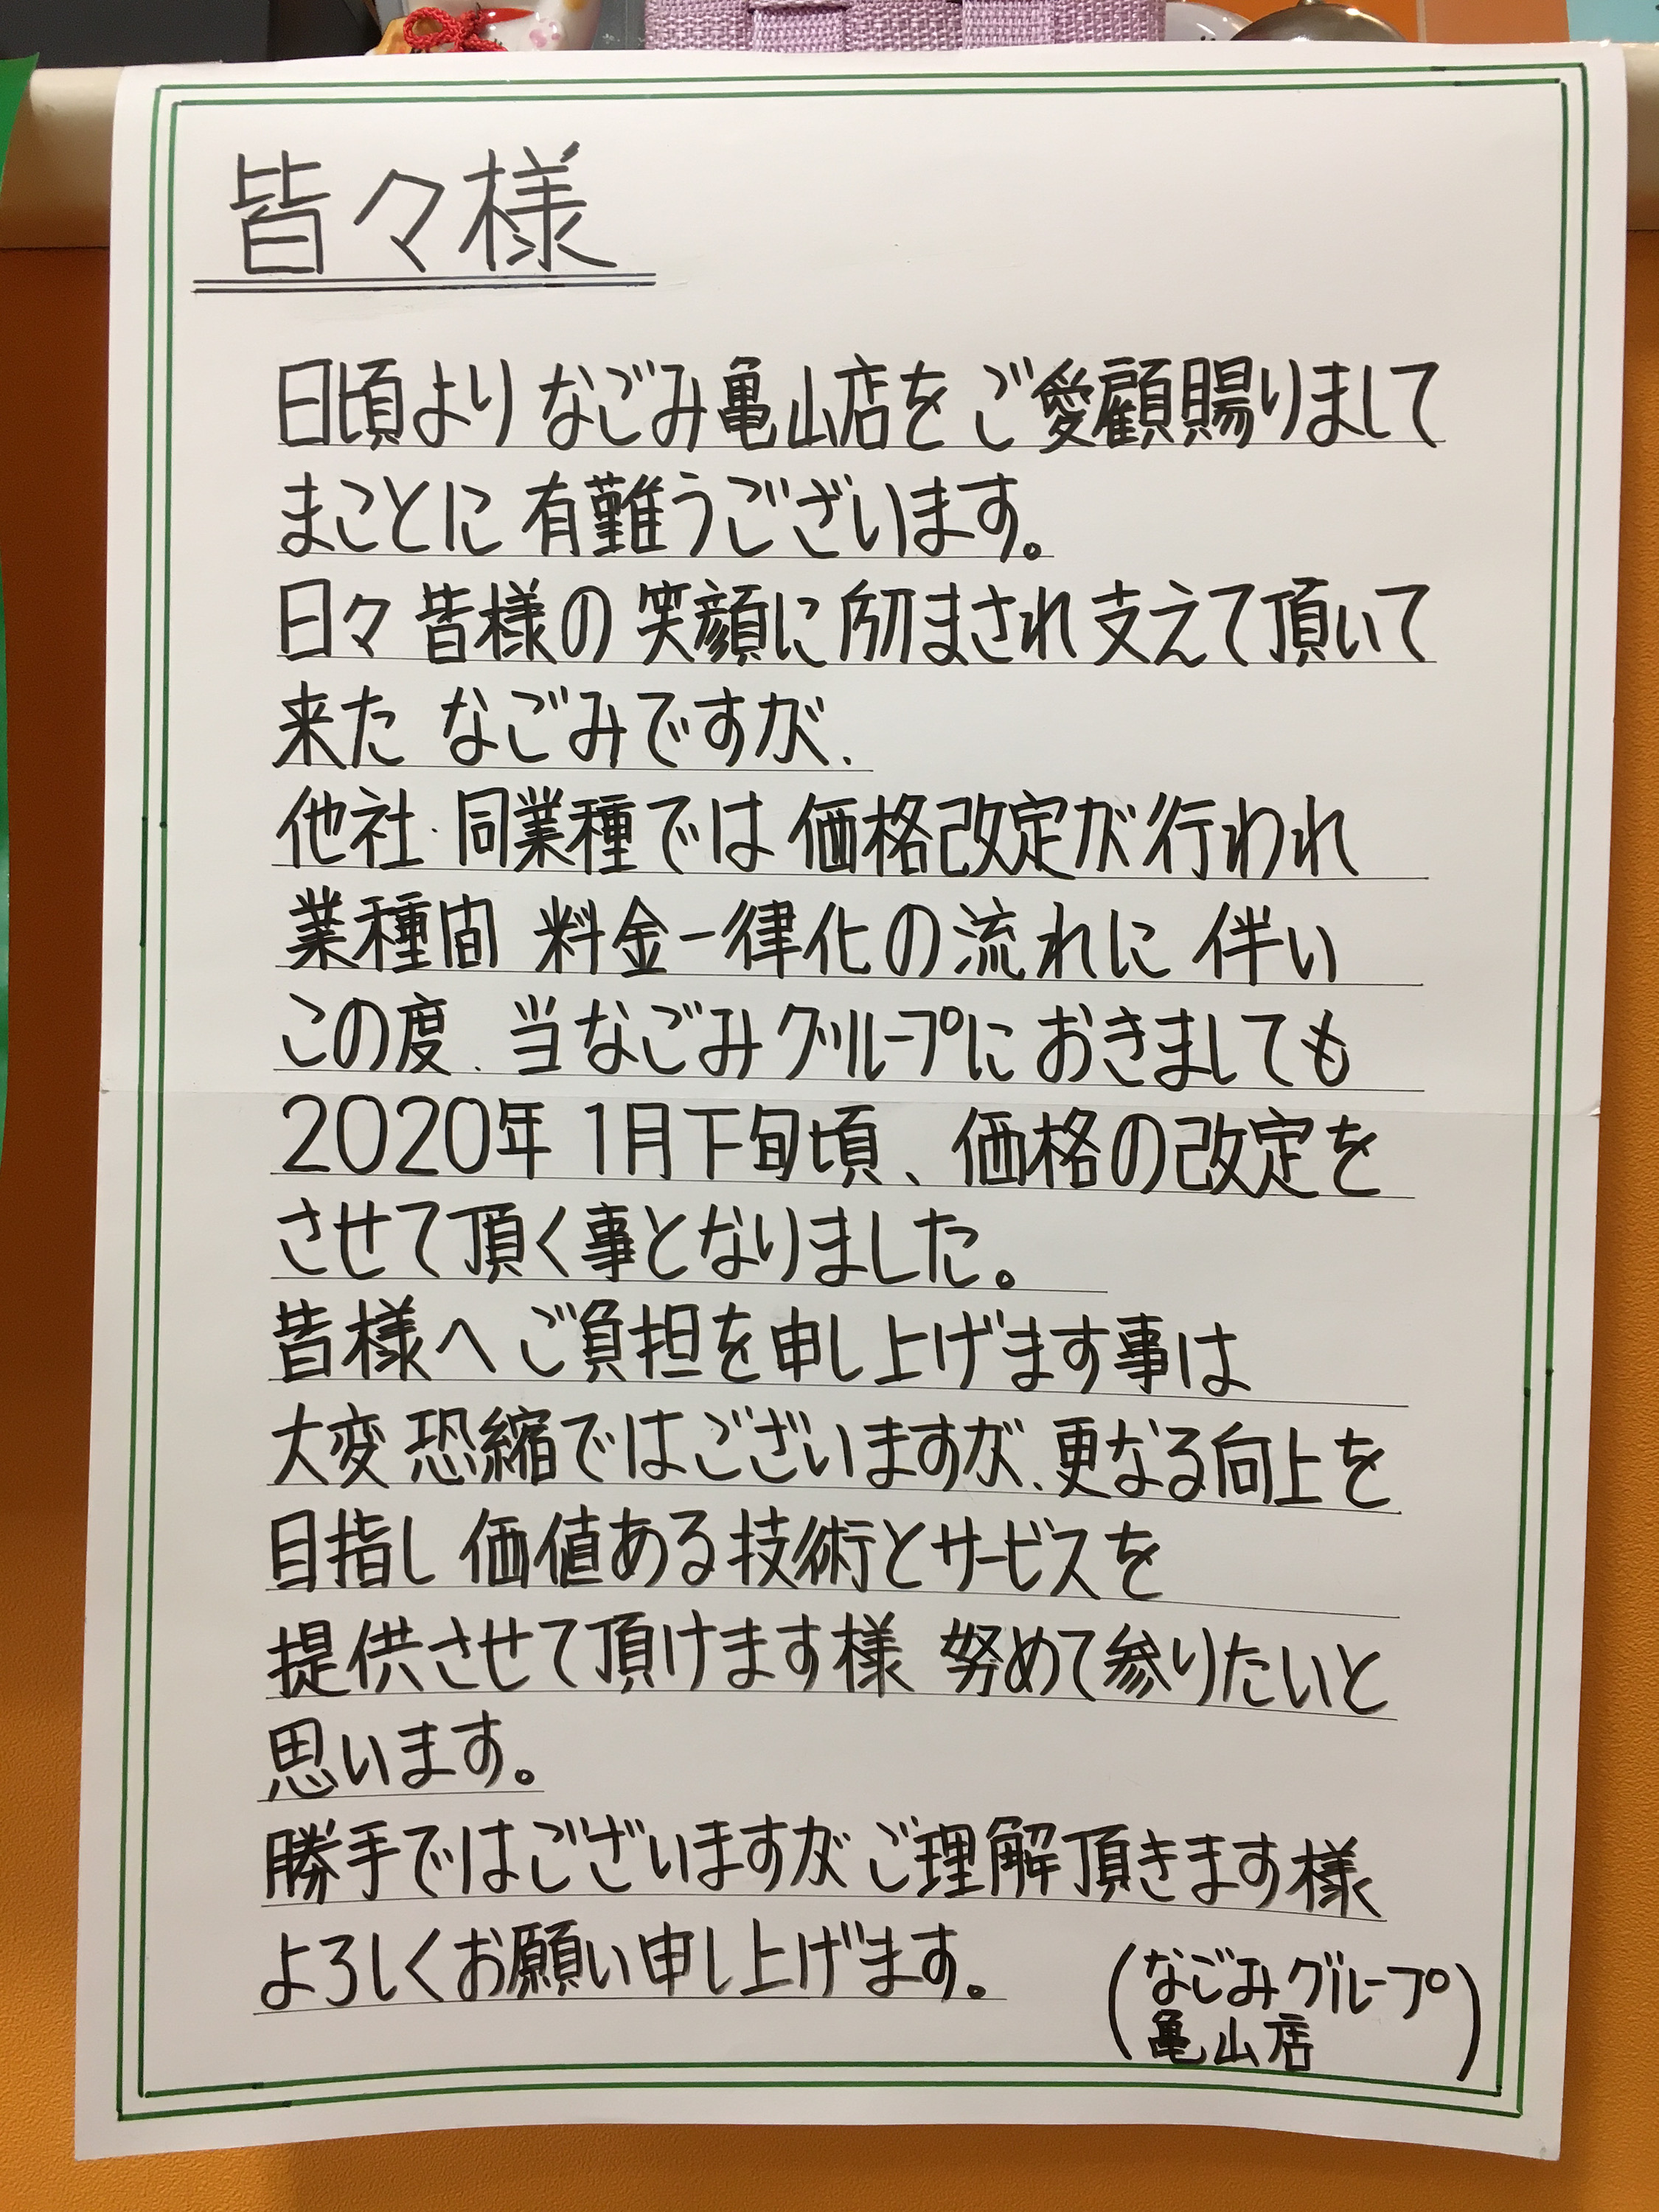 皆々様
日頃より なごみ亀山店を ご愛顧賜りまして
まことに 有難うございます。
日々 皆様の 笑顔に 励まされ 支えて頂いて
来た なごみですが、
他社・同業種では 価格改定が行われ
業種間 料金一律化の流れに 伴い
この度、当なごみグループに おきましても
2020年 1月下旬頃、価格の改定を
させて頂く事となりました。
皆様へ ご負担を申し上げます事は
大変 恐縮ではございますが、更なる向上を
目指し 価値ある技術とサービスを
提供させて頂けます様 努めて参りたいと
思います。
勝手ではございますが ご理解頂きます様
よろしくお願い申し上げます。
(なごみグループ
亀山店)